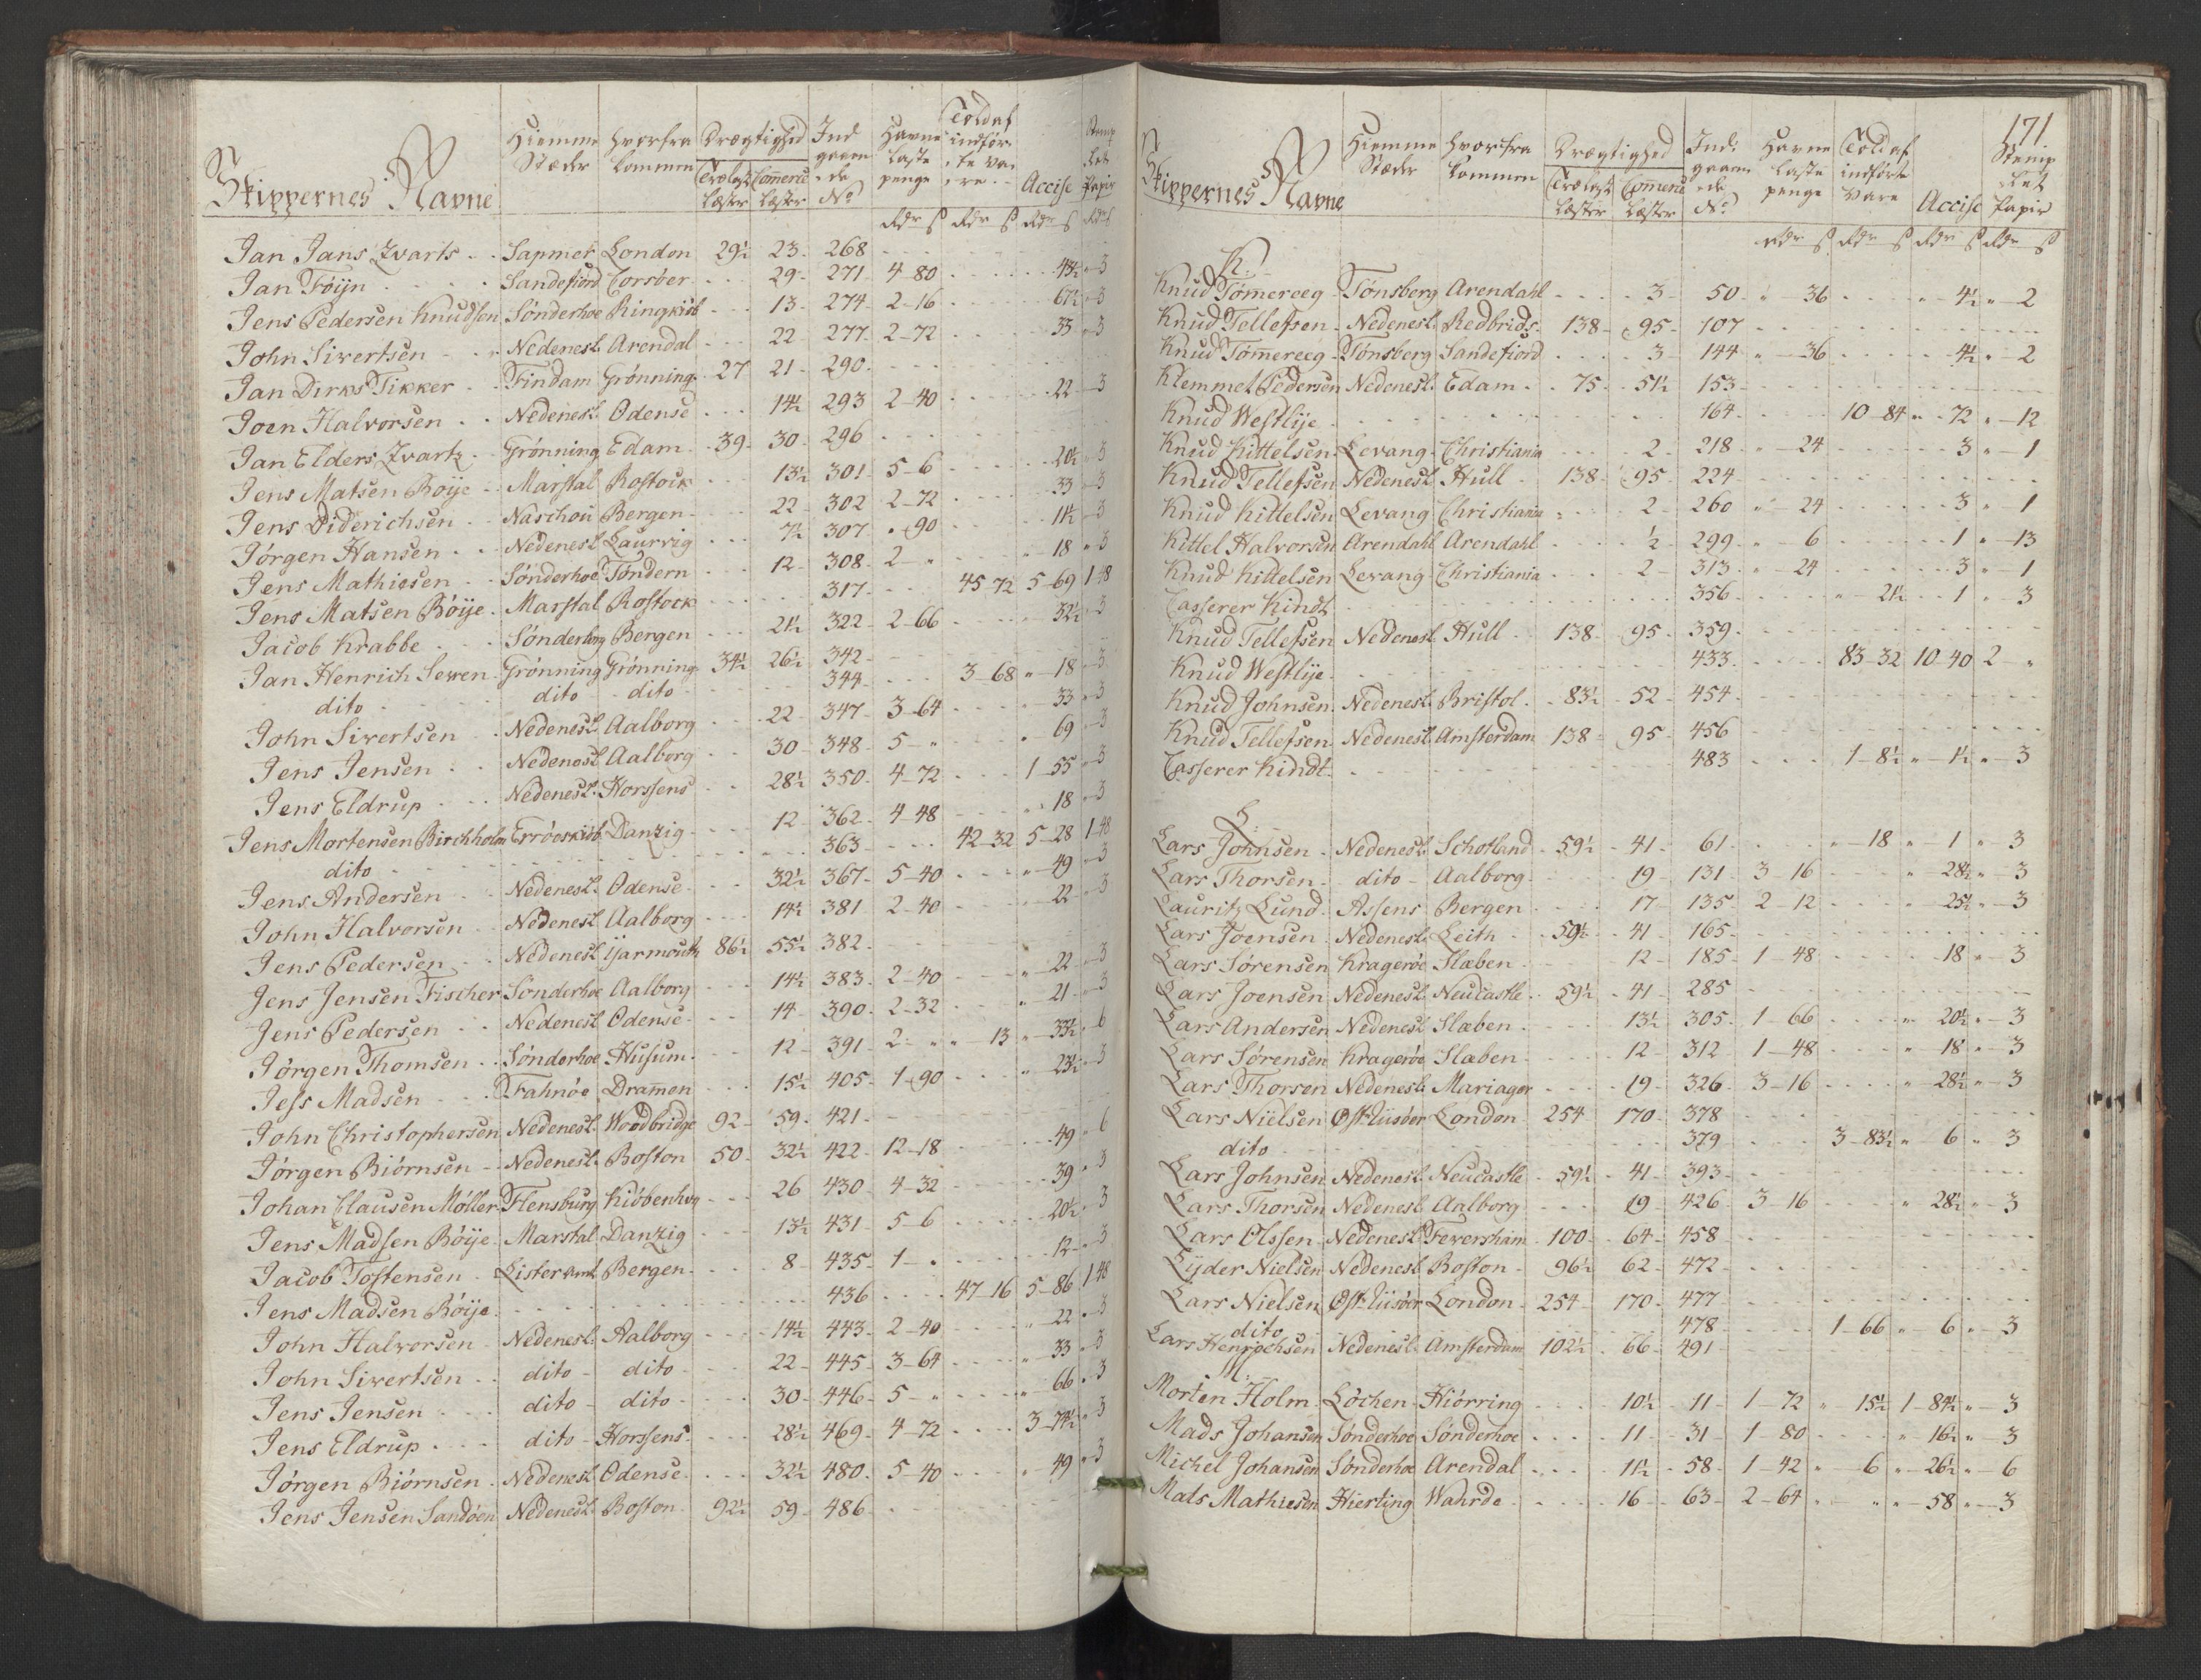 Skippernes Navne | Hiemme Stæder | hvorfra kommen | Drægtighed Trælast Læster | Comerce Læster | Ind gaaen de No | Havne Laste penge | Told af indför te Va re | Accise | Stemp let Papir
Rdr ß Rdr ß Rdr ß Rdr ß
Jan Jans Zvarts Sapmer London 29½ 23 268
Jan Föijn Sandefiord Corsöer 29 271 4-80 43½ 3
Jens Pedersen Knudsen Sönderhoe Ringkiöb 13 274 2-16 67½ 3
John Sivertsen Nedenesl. Arendal 22 277 2-72 33 3
Jan Dirks Tikker Findam Grönning. 27 21 290
Joen Halvorsen Nedenesl. Odense 14½ 293 2-40 22 3
Jan Elders Zvartz Grönning Edam 39 30 296
Jens Matsen Böije Marstal Rostock 13½ 301 5-6 20½ 3
Jens Diderichsen Naschou Bergen 22 302 2-72 33 3
Jörgen Hansen Nedenesl Laurvig 7½ 307 " 90 11½ 3
Jens Mathiesen Sönderhoe Töndern 12 308 2 " " 18 " 3
Jens Matsen Böije Marstal Rostock 317 45-72 5-69 1-48
Jacob Krabbe Sönderborg Bergen 21½ 322 2-66 32½ 3
Jan Henrich Sewen Grönning Grönning 34½ 26½ 342
dito dito dito 344 3-68 " 18 3
John Sivertsen Nedenesl. Aalborg 22 347 3-64 33 3
Jens Jensen Nedenesl Aalborg 30 348 5 " " 69 3
Jens Eldrup Nedenesl. Horssens 28½ 350 4-72 1-55 3
Jens Mortensen Birchholm Erröeskiöb Danzig 12 362 4-48 " 18 3
dito 363 42-32 5-28 1-48
Jens Andersen Nedenesl. Odense 32½ 367 5-40 " 49 3
John Halvorsen Nedenesl Aalborg 14½ 381 2-40 22 3
Jens Pedersen Nedenesl Yarmouth 86½ 55½ 382
Jens Jensen Fischer Sönderhoe Aalborg 14½ 383 2-40 " 22 3
Jens Pedersen Nedenesl Odense 14 390 2-32 " 21 3
Jörgen Thomsen Sönderhoe Husum 12 391 2 " " 13 " 33½ 6
Jess Madsen Fahnöe Dramen 15½ 405 1-90 " 23½ 3
John Christophersen Nedenesl. Woodbridge 92 59 421
Jörgen Biörnsen Nedenesl. Boston 50 32½ 422 12-18 49 6
Johan Clausen Möller Flensburg Kiöbenhvn 26 430 4-32 39 3
Jens Madsen Böije Marstal Danzig 13½ 431 5-6 20½ 3
Jacob Tostensen Lister amt Bergen 8 435 1 " 12 3
Jens Madsen Böije 436 47-16 5-86 1-48
John Halvorsen Nedenesl. Aalborg 14½ 443 2-40 " 22 3
John Sivertsen dito dito 22 445 3-64 " 33 3
Jens Jensen dito dito 30 446 5 " " 66 3
Jens Eldrup dito Horssens 28½ 469 4-72 3-74½ 3
Jörgen Biörnsen Nedenesl Odense 32½ 480 5-40 " 49 3
Jens Jensen Sandöen Nedenesl. Boston 92½ 59 486
171
Skippernes Navne | Hiemme Stæder | hvorfra kommen | Drægtighed Trælast Læster | Comerce Læster | Ind: gaaen de No | Havne Laste penge | Told af indförte Vare | Accise | Stemp let Papir
Rdr ß Rdr ß Rdr ß Rdr ß
K.
Knud Tömereeg Tönsberg Arendahl 3 50 " 36 " 4½ " 2
Knud Tellefsen Nedenesl. Redbrids. 138 95 107
Knud Tömereeg Tönsberg Sandefiord 3 144 " 36 4½ " 2
Klemmet Pedersen Nedenesl. Edam 75 51½ 153
Knud Westlije 164 10-84 " 72 " 12
Knud Kittelsen Levang Christiania 2 218 " 24 3 " 1
Knud Tellefsen Nedenesl. Hull 138 95 224
Knud Kittelsen Levang Christiania 2 260 " 24 3 " 1
Kittel Halvorsen Arendahl Arendahl ½ 299 " 6 1 " 13
Knud Kittelsen Levang Christiania 2 313 " 24 3 " 1
Casserer Kindt 356 " 21½ 1 " 3
Knud Tellefsen Nedenesl. Hull 138 95 359
Knud Westlije 433 83-32 10-40 2 "
Knud Johnsen Nedenesl. Bristol 83½ 52 454
Knud Tellefsen Nedenesl Amsterdam 138 95 456
Casserer Kindt 483 1-8½ " 1½ " 3
L.
Lars Johnsen Nedenesl. Schotland 59½ 41 61 " 18 " 1 " 3
Lars Thorsen dito Aalborg 19 131 3-16 " 28½ " 3
Lauritz Lund Assens Bergen 17 135 2-12 " 25½ " 3
Lars Joensen Nedenesl. Leith 59½ 41 165
Lars Sörensen Kragerôe Slæben 12 185 1-48 18 " 3
Lars Joensen Nedenesl. Neucastle 59½ 41 285
Lars Andersen Nedenesl Slæben 13½ 305 1-66 " 20½ " 3
Lars Sörensen Kragerôe Slæben 12 312 1-48 " 18 " 3
Lars Thorsen Nedenesl. Mariager 19 326 3-16 " 28½ " 3
Lars Nielsen Öst-Riisöer London 254 170 378
dito 379 3-83½ " 6 " 3
Lars Johnsen Nedenesl Neucastle 59½ 41 393
Lars Thorsen Nedenesl Aalborg 19 426 3-16 " 28½ " 3
Lars Olssen Nedenesl. Feversham 100 64 458
Lyder Nielsen Nedenesl Boston 96½ 62 472
Lars Nielsen Öst-Riisöer London 254 170 477
dito 478 1-66 " 6 " 3
Lars Henrochsen Nedenesl. Amsterdam 102½ 66 491
M.
Morten Holm Löchen Hiörring 10½ 11 1-72 " 15½ 1-84½ " 3
Mads Johansen Sönderhoe Sönderhoe 11 31 1-80 " 16½ " 3
Michel Johansen Sönderhoe Arendal 11½ 58 1-42 " 6 " 26½ " 6
Mats Mathiesen Hierting Wahrde 16 63 2-64 " " " 58 " 3